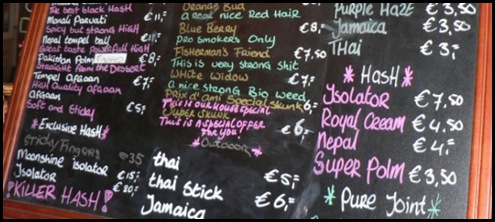 The best black Hash
Manali Parvati €11,-
Spicy but strong High
Nepal tempel ball €11,-
Great taste powerfull High
Pakistan Polm €8,-
Straight from the Dessert
Tempel Afgaan €7,-
High Quality afgaan
Afgaan €5,-
Soft and Sticky
*Exclusive Hash*
Sticky Fingers €35
Moonshine isolator €15,-
Isolator €20,-
!KILLER HASH!
Orange Bud
A real nice Red Hair
Blue Berry €8,-
Pro Smokers Only
Fisherman's Friend €7,50
This is very strong shit
White Widow €7,-
A nice strong Bio weed
Prix d'ami Special Skunk 6,-
This is our house special
Super Skunk €6,-
This is a special offer
for you!
*Outdoor*
thai €5,-
thai Stick €6,-
Jamaica
Purple Haze
Jamaica €3,-
Thai €3,-
*HASH*
Isolator €7,50
Royal Cream €4,50
Nepal €4,-
Super Polm €3,50
*Pure Joint*